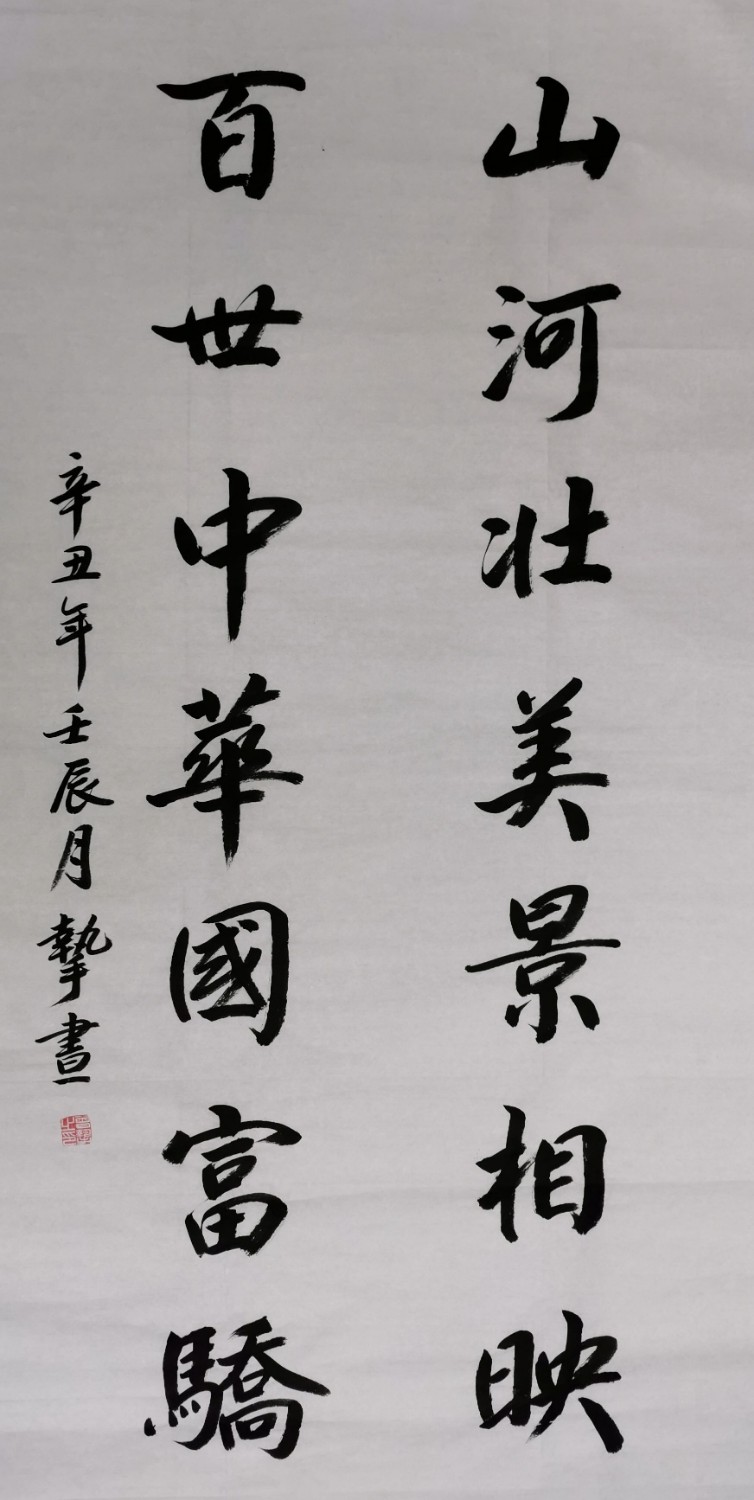 山河壯美景相映
百世中華國富驕
辛丑年壬辰月摯書